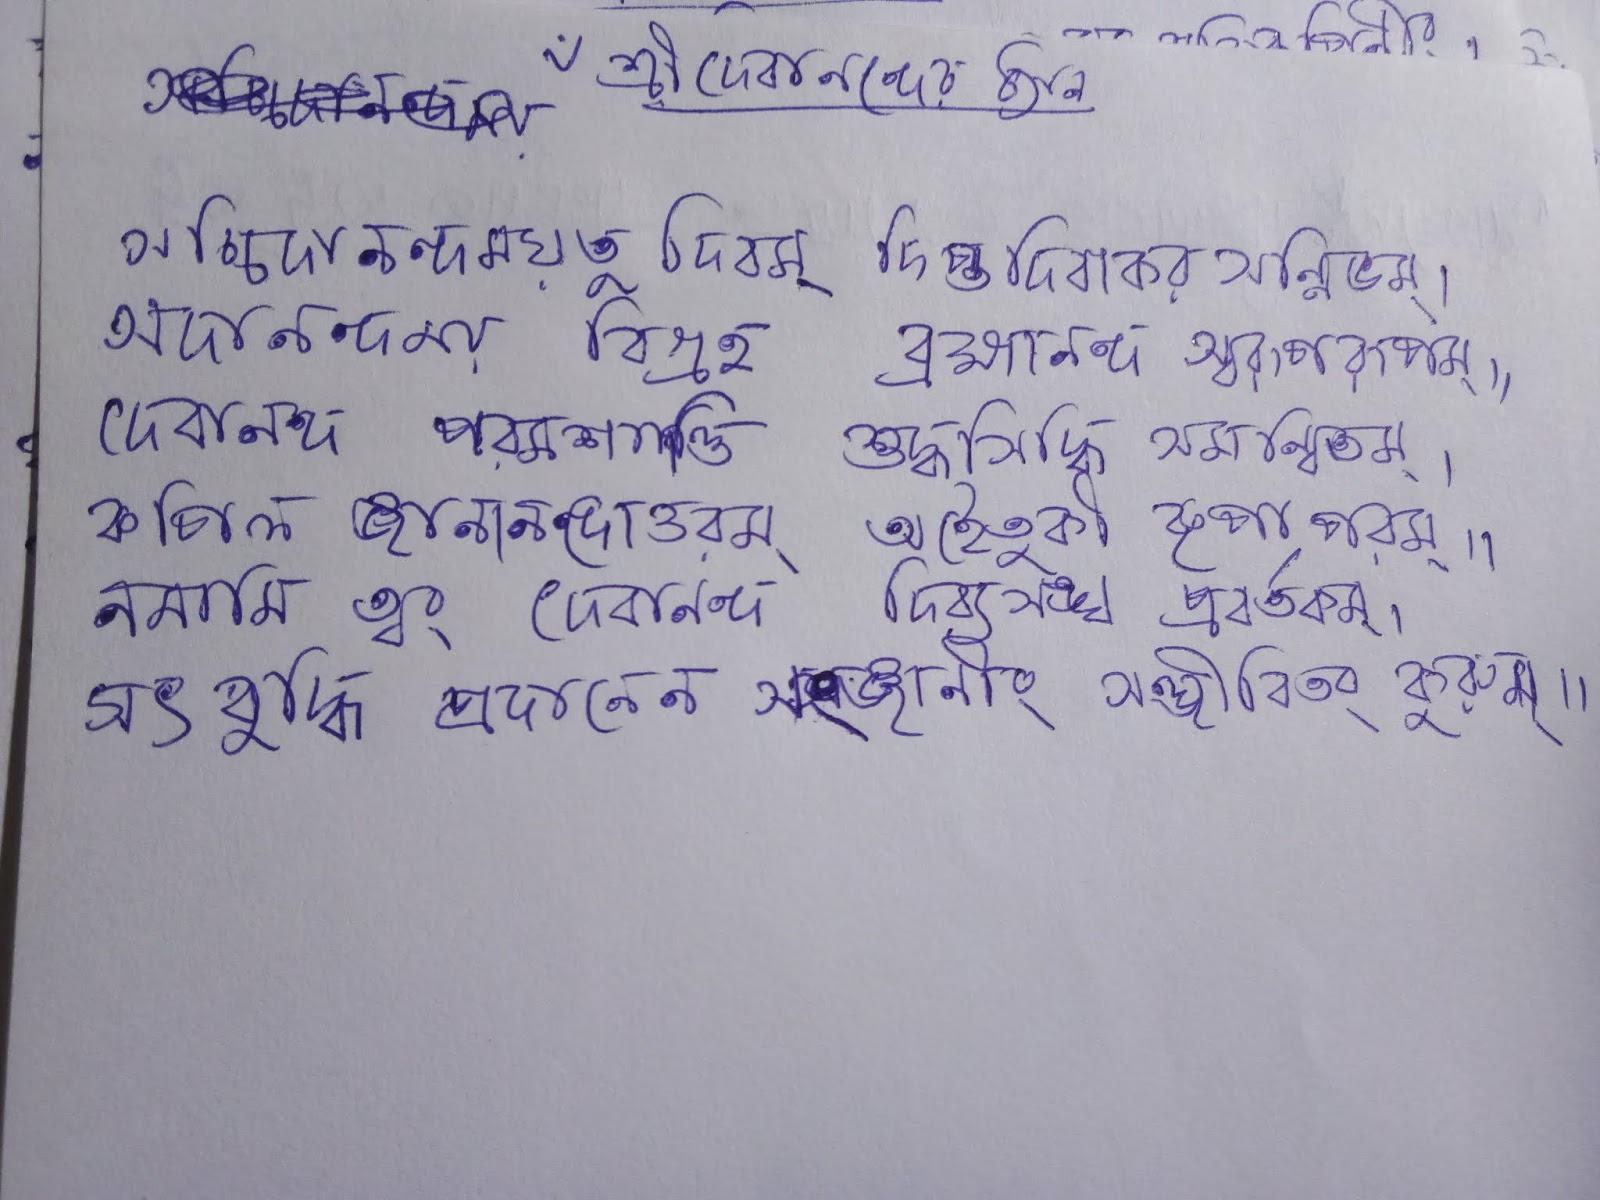 শ্রীদেবানন্দের ধ্যান
সচ্চিদানন্দময়তু দিবম্ দিপ্তদিবাকর সন্নিভম্।
সদানন্দময় বিগ্রহ ব্রহ্মানন্দ স্বরূপরূপম্।।
দেবানন্দ পরমশান্তি শুদ্ধসিদ্ধি সমান্বিতম্।
কপিল জ্ঞানানন্দোত্তরম্ অহৈতুকী কৃপা পরম্।।
নমামি ত্বং দেবানন্দ দিব্যসংঘ প্রবর্তকম্।
সৎ বুদ্ধি প্রদানেন সঞ্জীবিতং কুরুম্।।